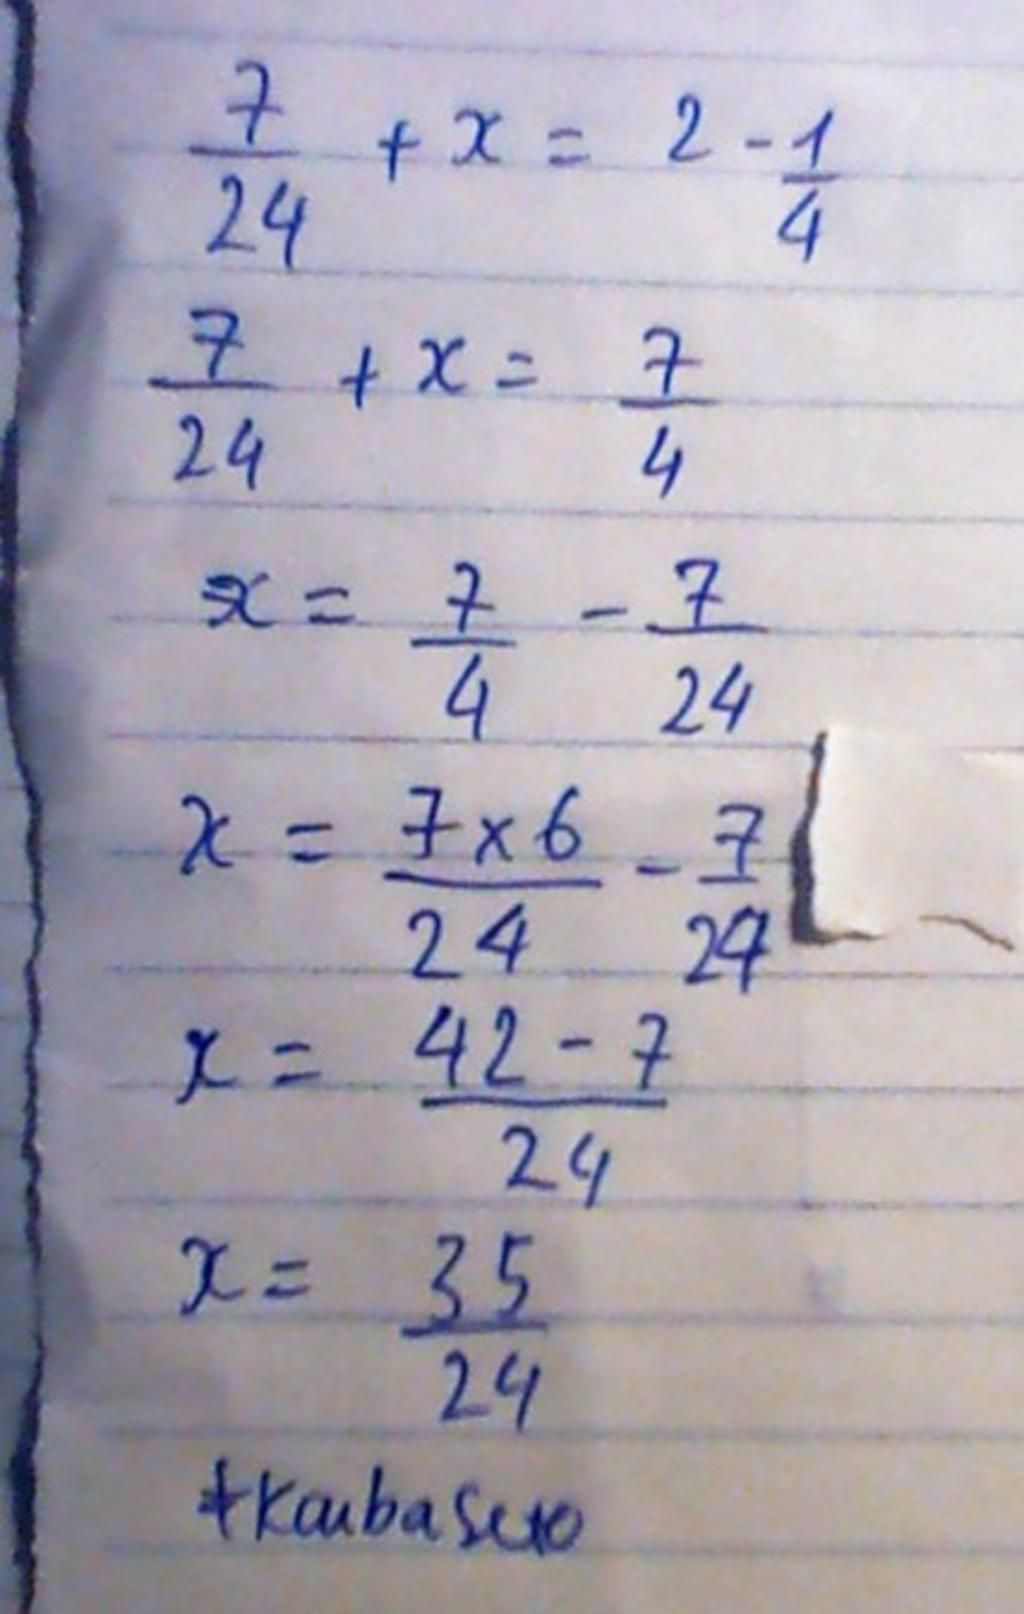 7/24 + x = 2 - 1/4
7/24 + x = 7/4
x = 7/4 - 7/24
x = 7x6/24 - 7/24
x = 42 - 7/24
x = 35/24